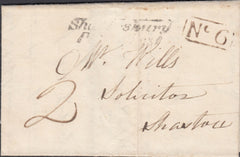 Shaftesbury
No 6
Mr. Wills
2
Solicitor
Shaston